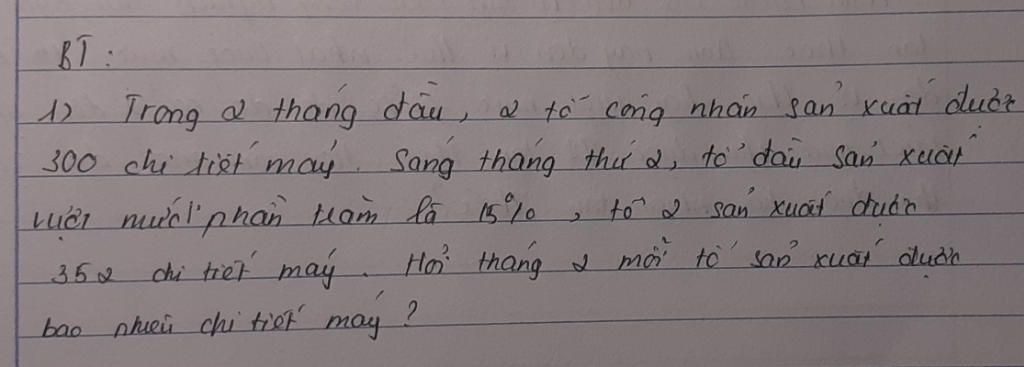 BT:
1) Trong 2 tháng đầu, 2 tổ công nhân sản xuất được
300 chi tiết máy. Sang tháng thứ 2, tổ đầu sản xuất
vượt mức phần trăm là 15%, tổ 2 sản xuất được
352 chi tiết máy. Hỏi tháng 2 mỗi tổ sản xuất được
bao nhiêu chi tiết máy?